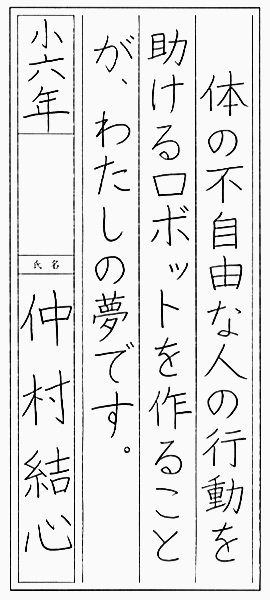 体の不自由な人の行動を
助けるロボットを作ること
が、わたしの夢です。
小六年
氏名
仲村結心